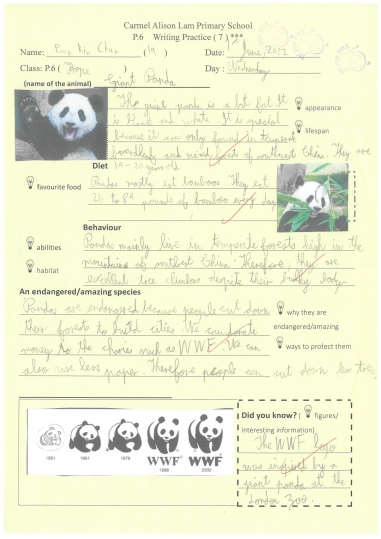 Carmel Alison Lam Primary School
P.6 Writing Practice ( 7 ) ***
Name: Poon Chun ( 19 ) Date: June, 2022
Class: P.6 ( Hope ) Day : Wednesday
(name of the animal) Giant Panda
The giant panda is a bit fat It
is black and white. It is special
because it can only found in temperate
broadleaf and mixed of southwest China. They are
14 - 20 years old.
appearance
lifespan
Diet
favourite food
Pandas mostly eat bamboos. They eat
26 to 84 pounds of bamboo every day
Behaviour
abilities
habitat
Pandas mainly live in temperate forests high in the
mountains of southwest China. Therefore, they are
excellent tree climbers despite their body
An endangered/amazing species
Pandas are endangered because people cut down
their forests to build cities. We can donate
money to the such as WWF. We can
also use less paper. Therefore people can cut down less trees
why they are
endangered/amazing
ways to protect them
1961 1961 1978 1986 2000
WWF WWF
Did you know? ( figures/
interesting information)
The WWF logo
was inspired by a
giant panda at the
London Zoo.